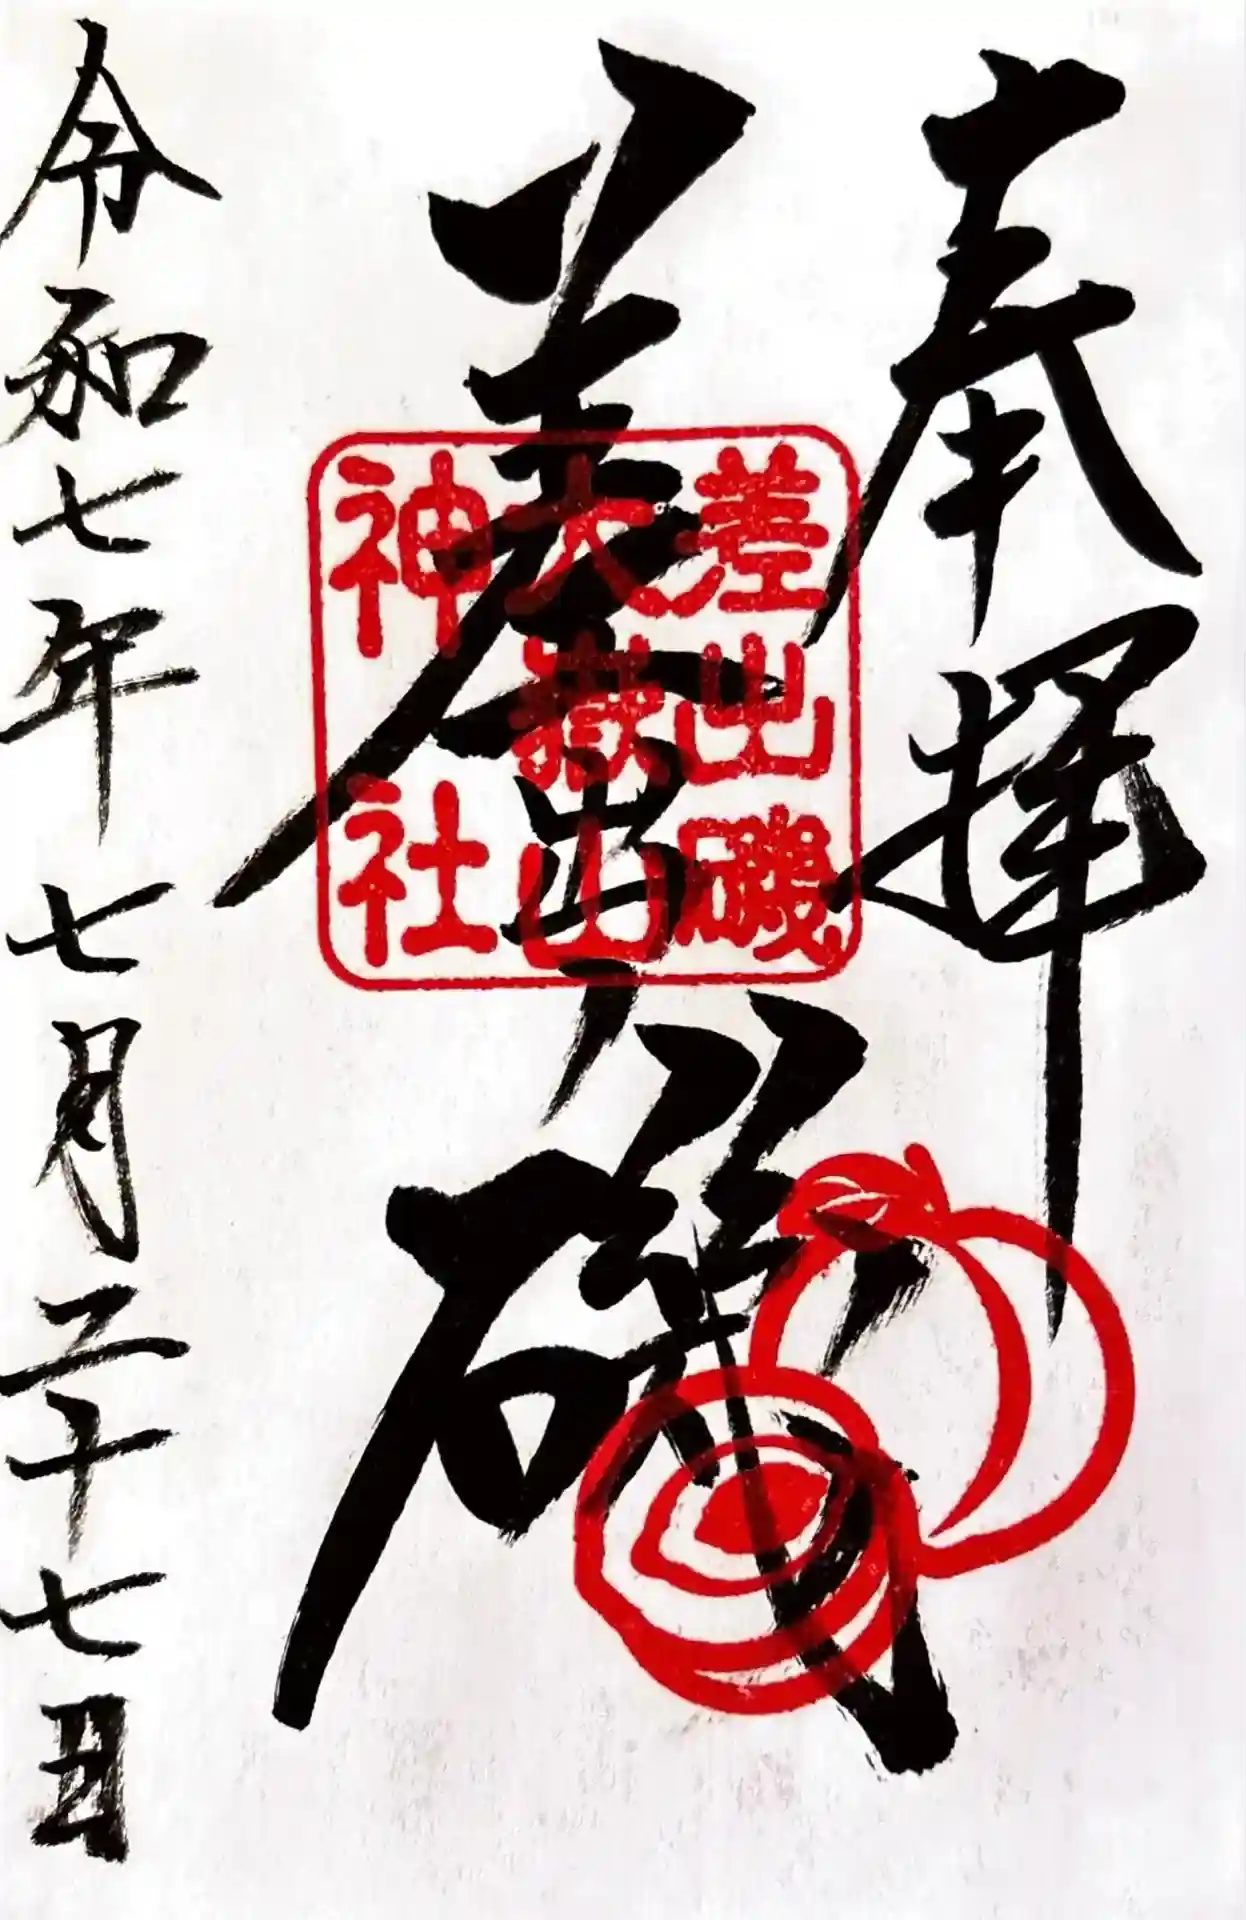 奉拝
差出磯
差出磯
大嶽山
神社
令和七年七月二十七日